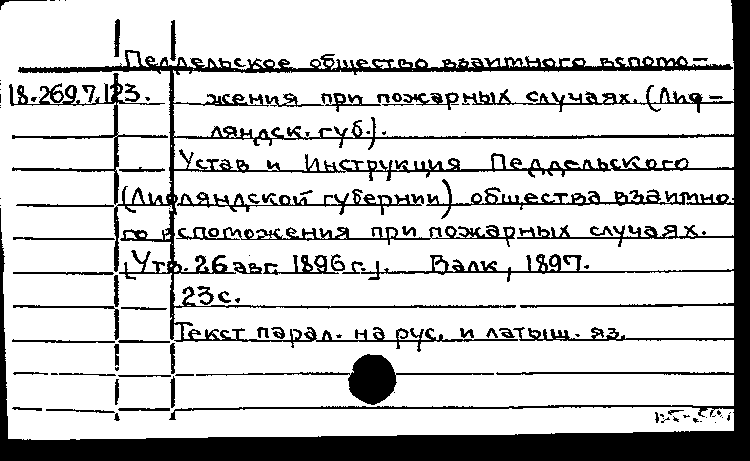 Педдельское общество взаимного вспомо-
18.269.7.123. жения при пожарных случаях. (Лиф-
ляндск. губ.).
Устав и Инструкция Педдельского
(Лифляндской губернии) общества взаимно-
го вспоможения при пожарных случаях.
[Утв. 26 авг. 1896 г.]. Валк, 1897.
23 с.
Текст парал. на рус. и латыш. яз.